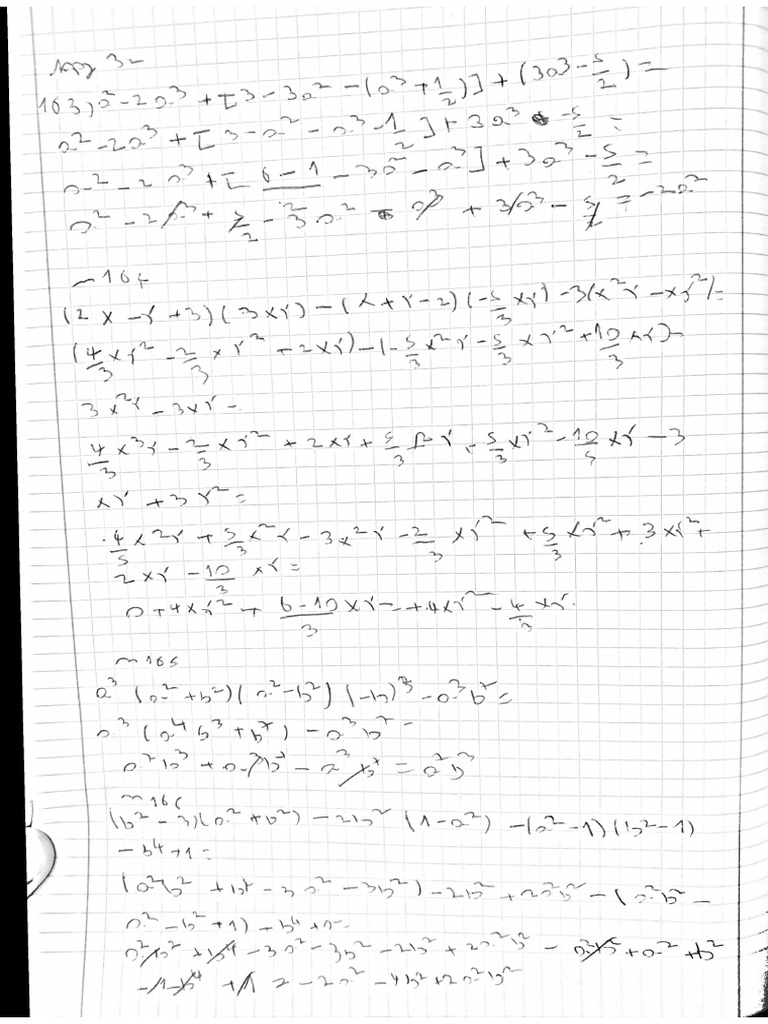 pag 32
163) a² - 2a³ + [3 - 3a² - (a³ + 1/2)] + (3a³ - 5/2) =
a² - 2a³ + [3 - a² - a³ - 1/2] + 3a³ - 5/2 =
a² - 2a³ + [6 - 1/2 - 3a² - a³] + 3a³ - 5/2 =
a² - 2a³ + 5/2 - 3a² - a³ + 3a³ - 5/2 = -2a²
n 164
(2x - y + 3)( 3xy) - (x + y - 2)(-5/3 xy) - 3(x²y - xy²) =
(4/3 xy² - 2/3 xy² + 2xy) - (-5/3 x²y - 5/3 xy² + 10/3 xy) -
3x²y - 3xy =
4/3 x²y - 2/3 xy² + 2xy + 5/3 x²y + 5/3 xy² - 10/3 xy - 3
xy + 3y² =
4/3 x²y + 5/3 x²y - 3x²y - 2/3 xy² + 5/3 xy² + 3xy² +
2xy - 10/3 xy =
0 + 4xy² + 6-10/3 xy = +4xy² - 4/3 xy.
n 165
a³ (a² + b²)(a² - b²)(-b)³ - a³b⁷ =
a³ (a⁴b³ + b⁷) - a³b⁷ =
a⁷b³ + a³b⁷ - a³b⁷ = a⁷b³
n 166
(b² - 3)(a² + b²) - 2b² (1 - a²) - (a² - 1)(b² - 1)
- b⁴ + 1 =
(a²b² + b⁴ - 3a² - 3b²) - 2b² + 2a²b² - (a²b² -
a² - b² + 1) - b⁴ + 1 =
a²b² + b⁴ - 3a² - 3b² - 2b² + 2a²b² - a²b² + a² + b²
- 1 - b⁴ + 1 = -2a² - 4b² + 2a²b²